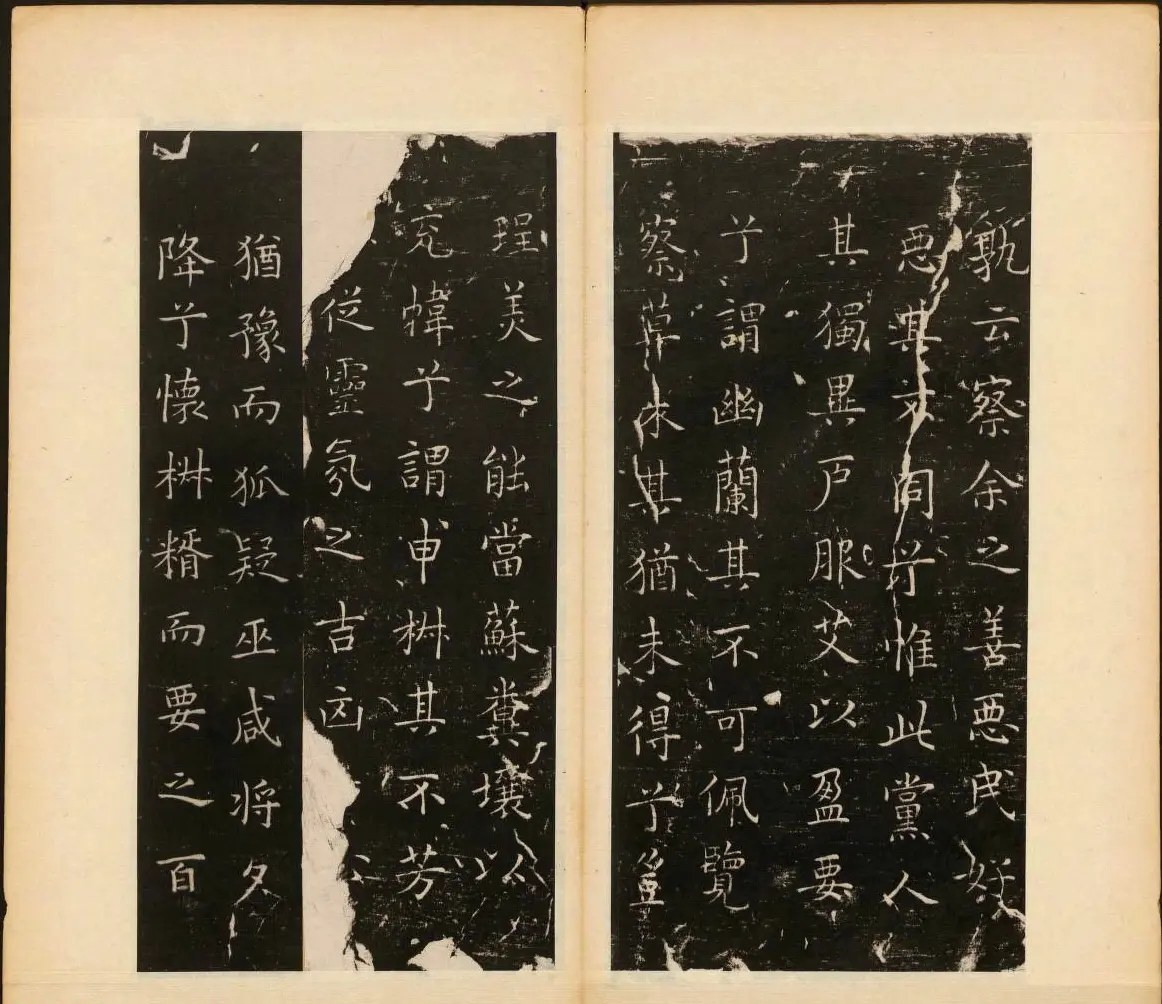 孰云察余之善悪民好
悪其不同兮惟此黨人
其獨異戶服艾以盈要
兮謂幽蘭其不可佩覽
察草木其猶未得兮豈
珵美之能當蘇糞壤以
充幃兮謂申椒其不芳
從靈氛之吉
猶豫而狐疑巫咸将夕
降兮懷椒糈而要之百